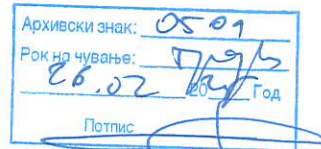 Архивски знак: 0501
Рок на чување:
26.02 20 Год
Потпис